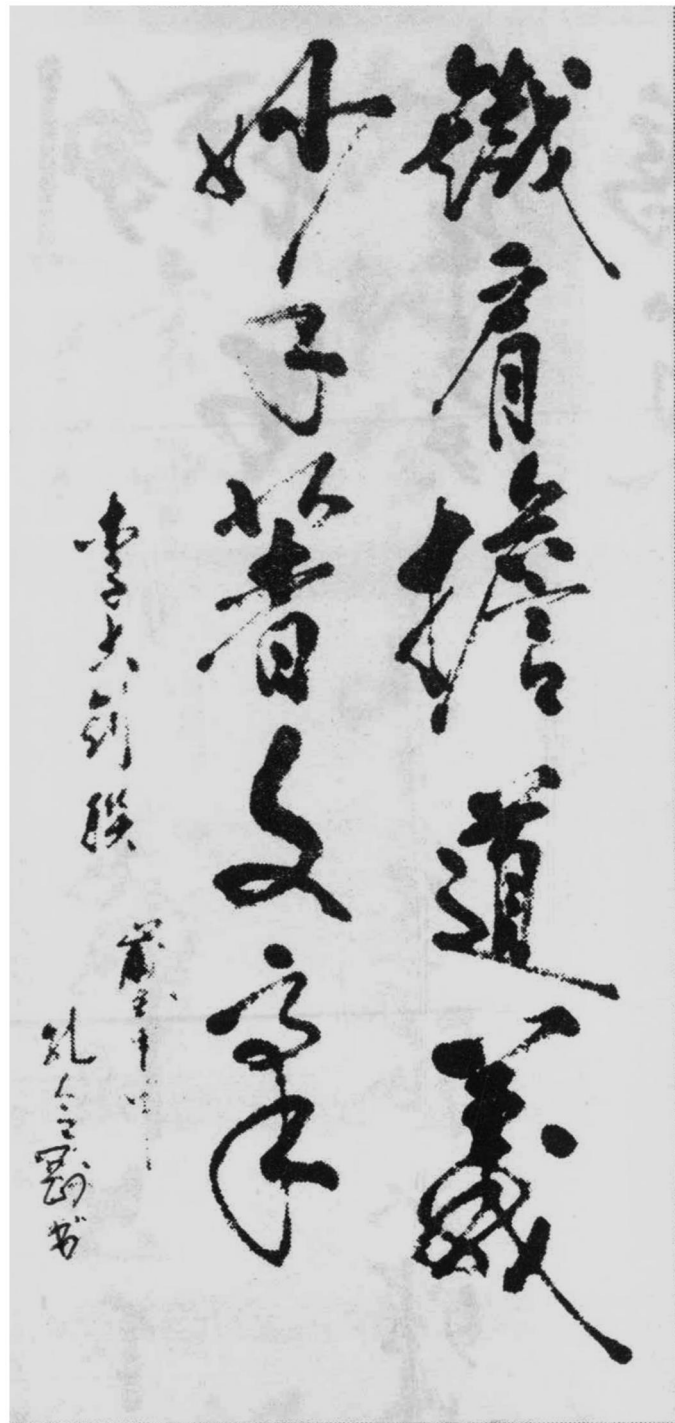 鐵肩擔道義
妙手著文章
李大釗聯
孔令 书